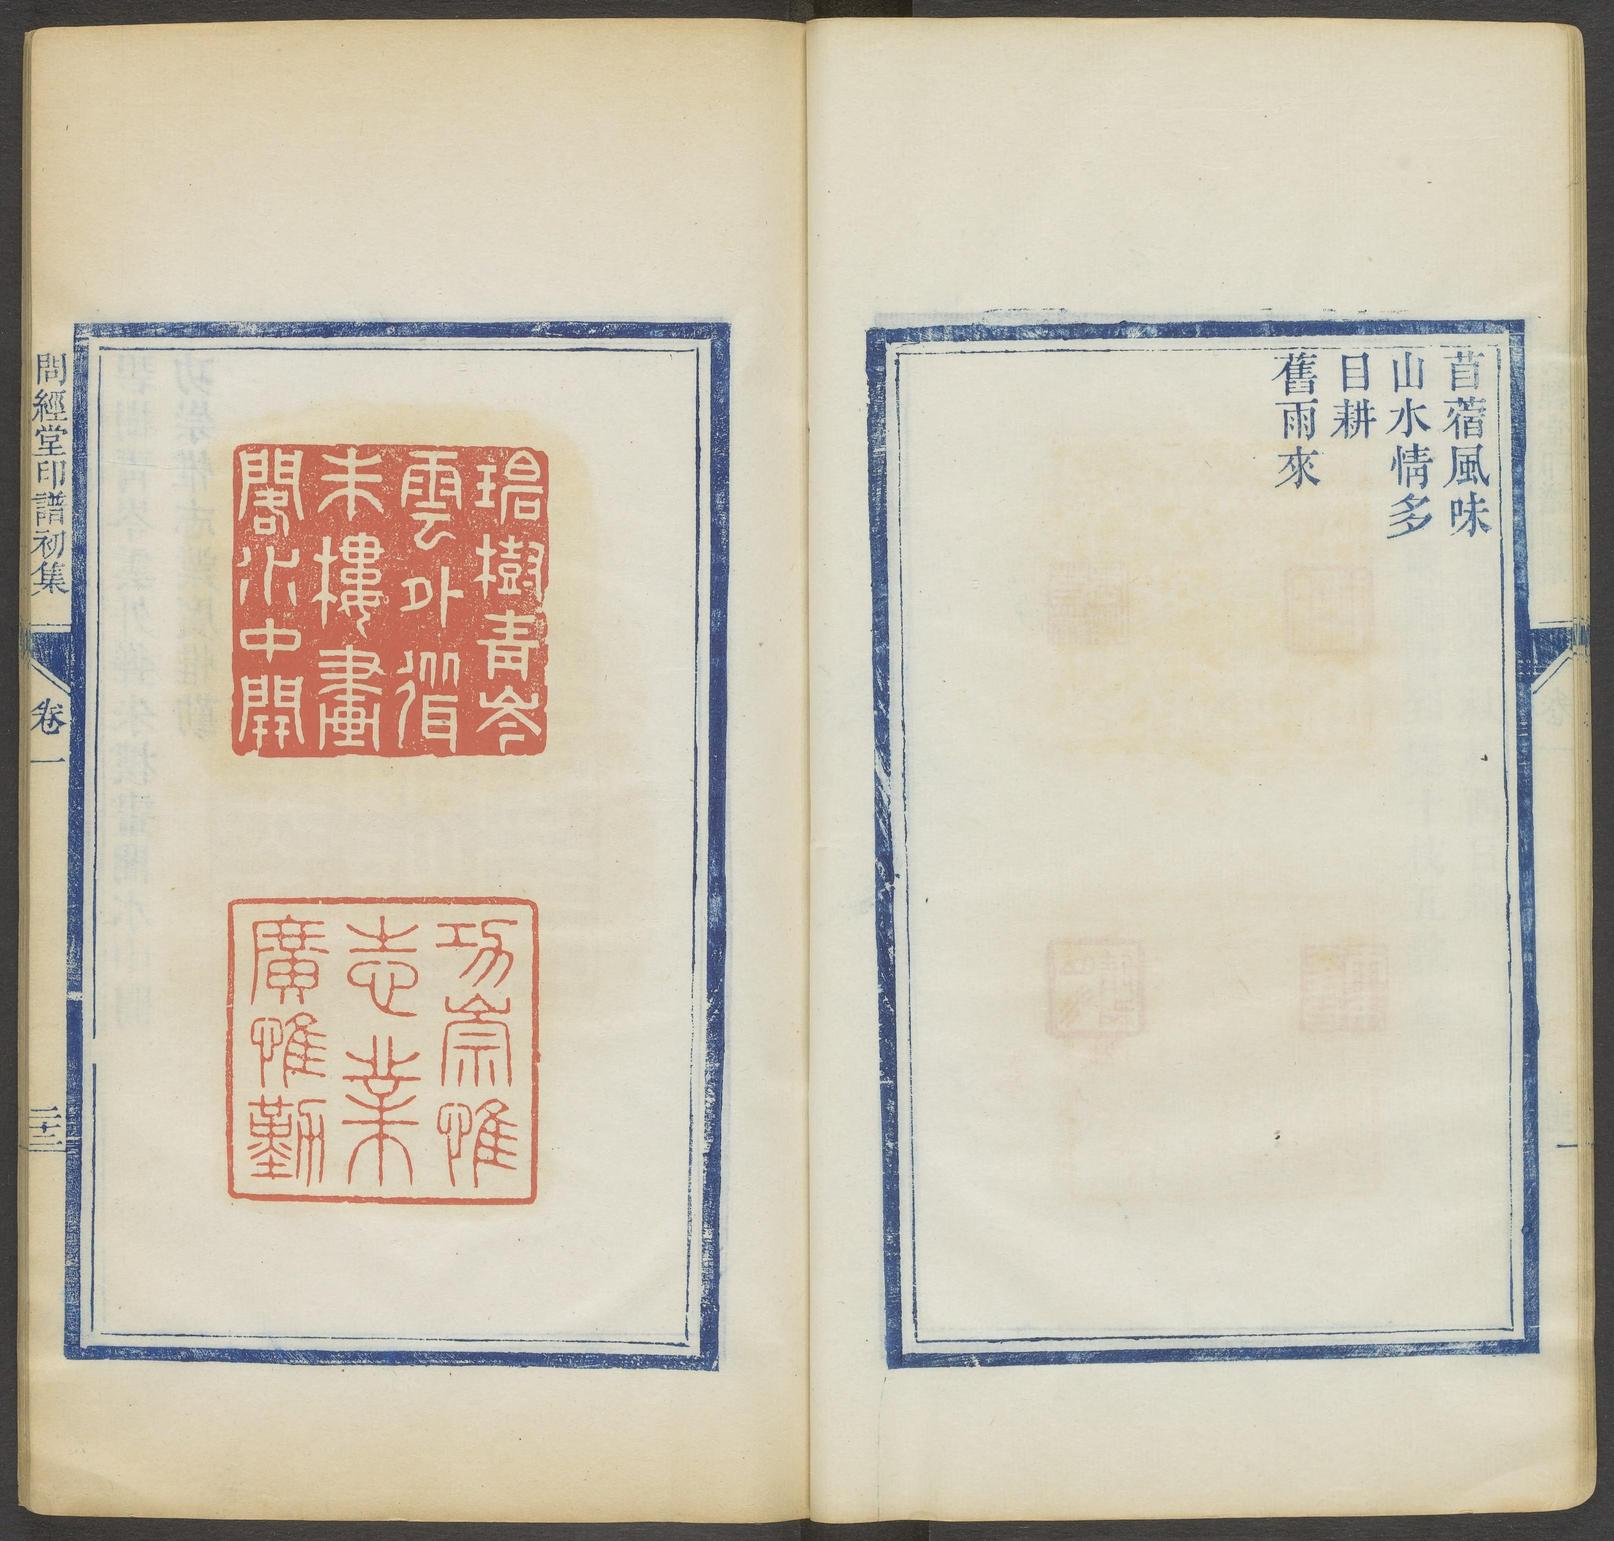 苜蓿風味
山水情多
目耕
舊雨來
碧樹青岑
雲外聳
朱樓畫
閣水中開
功崇惟
志業
廣惟勤
問經堂印譜初集
卷一
二十二